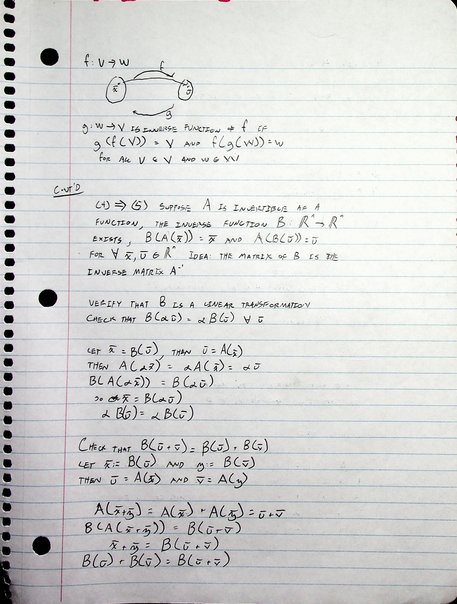 f: V → W
f
x̄
ū
g
g: W → V IS INVERSE FUNCTION OF f IF
g(f(V)) = V AND f(g(W)) = W
FOR ALL V ∈ V AND W ∈ W
CONT'D
(4) ⇒ (5) SUPPOSE A IS INVERTIBLE AS A
FUNCTION, THE INVERSE FUNCTION B: ℝⁿ → ℝⁿ
EXISTS, B(A(x̄)) = x̄ AND A(B(ū)) = ū
FOR ∀ x̄, ū ∈ ℝⁿ IDEA: THE MATRIX OF B IS THE
INVERSE MATRIX A⁻¹
VERIFY THAT B IS A LINEAR TRANSFORMATION
CHECK THAT B(αū) = αB(ū) ∀ ū
LET x̄ = B(ū), THEN ū = A(x̄)
THEN A(αx̄) = αA(x̄) = αū
B(A(αx̄)) = B(αū)
SO αx̄ = B(αū)
αB(ū) = αB(ū)
CHECK THAT B(ū+v̄) = B(ū) + B(v̄)
LET x̄ := B(ū) AND ȳ := B(v̄)
THEN ū = A(x̄) AND v̄ = A(ȳ)
A(x̄+ȳ) = A(x̄) + A(ȳ) = ū+v̄
B(A(x̄+ȳ)) = B(ū+v̄)
x̄+ȳ = B(ū+v̄)
B(ū) + B(v̄) = B(ū+v̄)